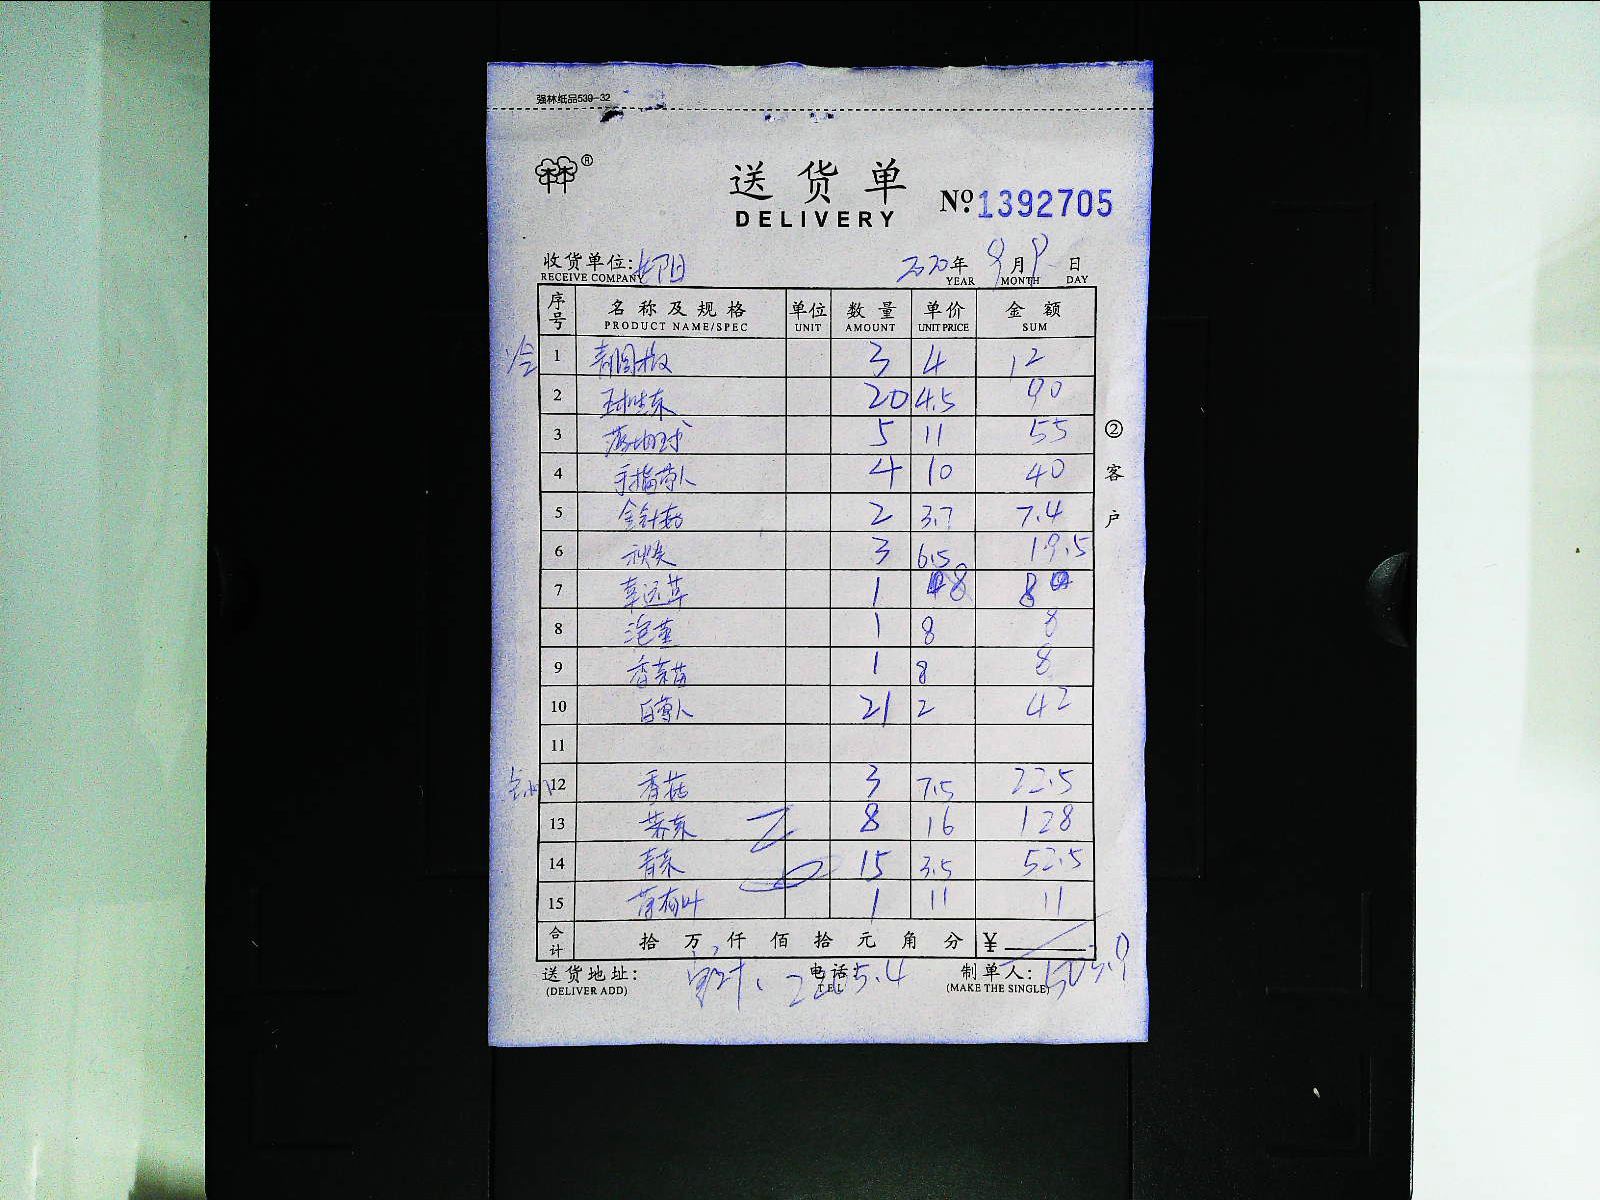 强林纸品539-32
®
送货单
DELIVERY
No. 1392705
收货单位: 2020年 9月 9日
RECEIVE COMPANY YEAR MONTH DAY
序号 名称及规格 单位 数量 单价 金额
PRODUCT NAME/SPEC UNIT AMOUNT UNIT PRICE SUM
冷 1 青圆椒 3 4 12
2 球生菜 20 4.5 90
3 5 11 55
4 手指 4 10 40
5 金针菇 2 3.7 7.4
6 秋葵 3 6.5 19.5
7 1 8 8
8 1 8 8
9 香菜苗 1 8 8
10 21 2 42
11
12 香菇 3 7.5 22.5
13 8 16 128
14 青菜 15 3.5 52.5
15 1 11 11
合计 拾 万 仟 佰 拾 元 角 分 ¥
503.9
送货地址: 电话: 制单人:
(DELIVER ADD) TEL (MAKE THE SINGLE)
②客户